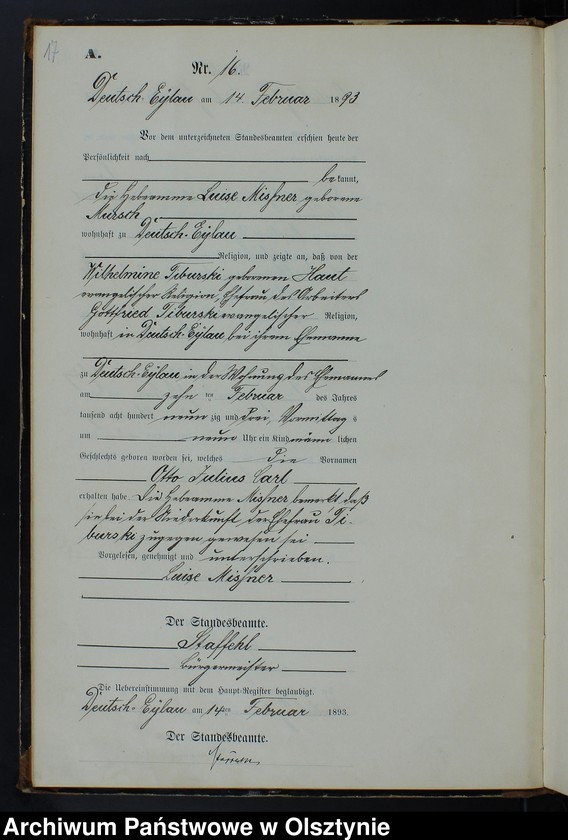 17
A.
Nr. 16.
Deutsch-Eylau am 14. Februar 1893
Vor dem unterzeichneten Standesbeamten erschien heute der
Persönlichkeit nach
bekannt,
die Hebeamme Luise Missner geborene
Mursch
wohnhaft zu Deutsch-Eylau
Religion, und zeigte an, daß von der
Wilhelmine Tiburski geborenen Haut
evangelischer Religion, Ehefrau des Arbeiters
Gottfried Tiburski evangelischer Religion,
wohnhaft in Deutsch-Eylau bei ihrem Ehemanne
zu Deutsch-Eylau in der Wohnung des Ehemannes
am zehnten Februar des Jahres
tausend acht hundert neunzig und drei, Vormittags
um neun Uhr ein Kind männlichen
Geschlechts geboren worden sei, welches die Vornamen
Otto Julius Carl
erhalten habe. Die Hebeamme Missner bemerkt, daß
sie bei der Niederkunft der Ehefrau Ti-
burski zugegen gewesen sei
Vorgelesen, genehmigt und unterschrieben.
Luise Missner
Der Standesbeamte.
Staffehl
Bürgermeister
Die Uebereinstimmung mit dem Haupt-Register beglaubigt.
Deutsch-Eylau am 14ten Februar 1893.
Der Standesbeamte.
Archiwum Państwowe w Olsztynie